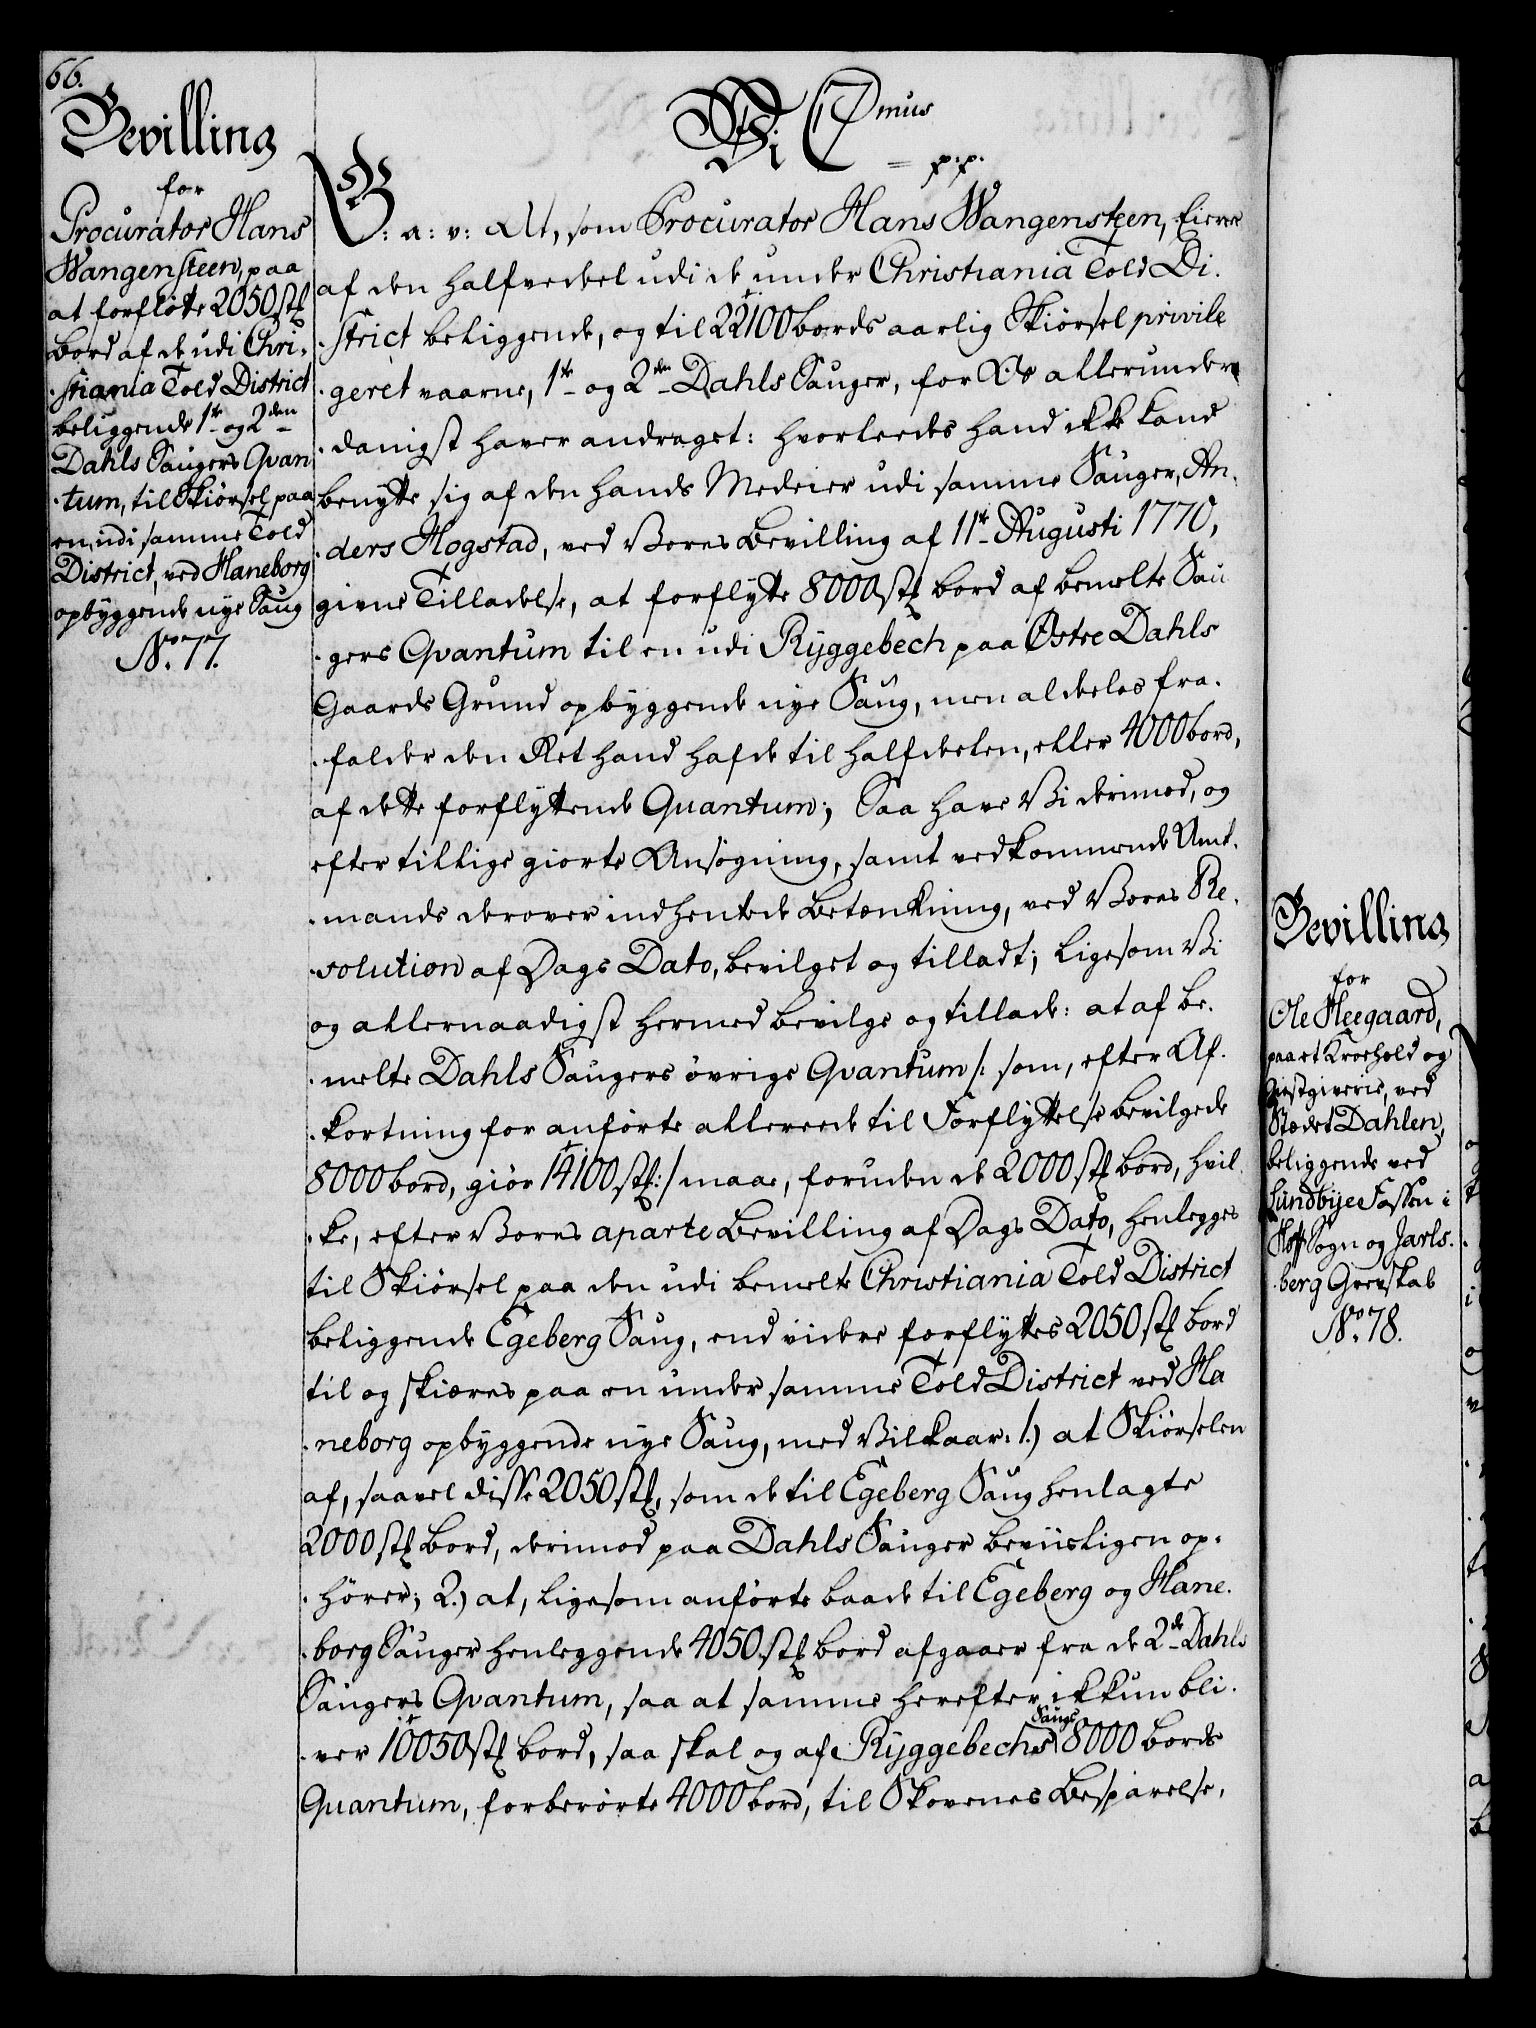 66.
Bevilling
for
Procurator Hans
Wangensteen, paa
at forflötte 2050 stk
bord af de udi Chri-
stiania Told District
beliggende 1te og 2den
Dahls Saugers Qvan
tum, til Skiörsel paa
en, udi samme Told
District, ved Haneborg
opbyggende nye Saug
No. 77.
Vi C7mus
p:p:
G: a: v: At, som Procurator Hans Wangensteen, Eier
af den halfvedeel udi de under Christiania Told Di-
strict beliggende, og til 22100 bords aarlig Skiörsel privile
geret vaarne, 1te og 2den Dahls Sauger, for Os allerunder
danigst haver andraget: hvorledes hand ikke kand
benytte sig af den hands Medeier udi samme Sauger, An-
ders Hogstad, ved Vores Bevilling af 11te Augusti 1770,
givne Tilladelse, at forflytte 8000 stk bord af bemelte Sau
gers Qvantum til en udi Ryggebech paa Østre Dahls
Gaards Grund opbyggende nye Saug, men aldeeles fra-
falder den Ret hand hafde til halfdeelen, eller 4000 bord,
af dette forflyttende Quantum; Saa have Vi derimod, og
efter tillige giorte Ansögning, samt vedkommende Amt-
mands derover indhentede Betænkning, ved Vores Re-
solution af Dags Dato, bevilget og tilladt; ligesom Vi
og allernaadigst hermed bevilge og tillade: at af be-
melte Dahls Saugers övrige Qvantum /: som, efter Af-
kortning for anförte allereede til Forflyttelse bevilgede
8000 bord, giör 14100 stk :/ maae, foruden de 2000 stk bord, hvil
ke, efter Vores aparte Bevilling af Dags Dato, henlegges
til Skiörsel paa den udi bemelte Christiania Told District
beliggende Egeberg Saug, end videre forflyttes 2050 stk bord
til og skiæres paa en under samme Told District ved Ha
neborg opbyggende nye Saug, med Vilkaar: 1.) at Skiörselen
af, saavel disse 2050 stk, som de til Egeberg Saug henlagte
2000 stk bord, derimod paa Dahls Sauger beviisligen op-
hörer; 2.) at, ligesom anförte baade til Egeberg og Hane-
borg Sauger henleggende 4050 stk bord afgaaer fra de 2de Dahls
Saugers Qvantum, saa at samme herefter ikkun bli-
ver 10050 stk bord, saa skal og af Ryggebechs Saugs 8000 bords
Quantum, forberörte 4000 bord, til Skovenes Besparelse,
Bevilling
for
Ole Heegaard,
paa et Kroehold og
Giestgiverie, ved
Stædet Dahlen,
beliggende ved
Lundbyee Fossen i
Hoff Sogn og Jarls-
berg Grevskab
No. 78.